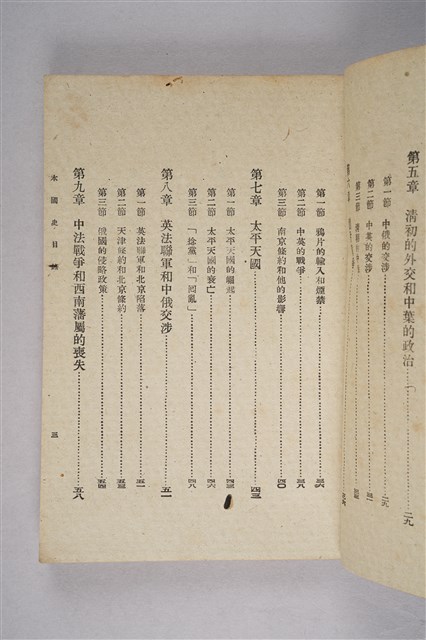 第五章 清初的外交和中葉的政治 二九
第一節 中俄的交涉 二九
第二節 中英的交涉 三一
第三節
第一節 鴉片的輸入和煙禁 三六
第二節 中英的戰爭 三八
第三節 南京條約和他的影響 四〇
第七章 太平天國 四三
第一節 太平天國的崛起 四三
第二節 太平天國的衰亡 四六
第三節 「捻黨」和「回亂」 四八
第八章 英法聯軍和中俄交涉 五一
第一節 英法聯軍和北京陷落 五一
第二節 天津條約和北京條約 五三
第三節 俄國的侵略政策 五四
第九章 中法戰爭和西南藩屬的喪失 五八
本國史目錄 三